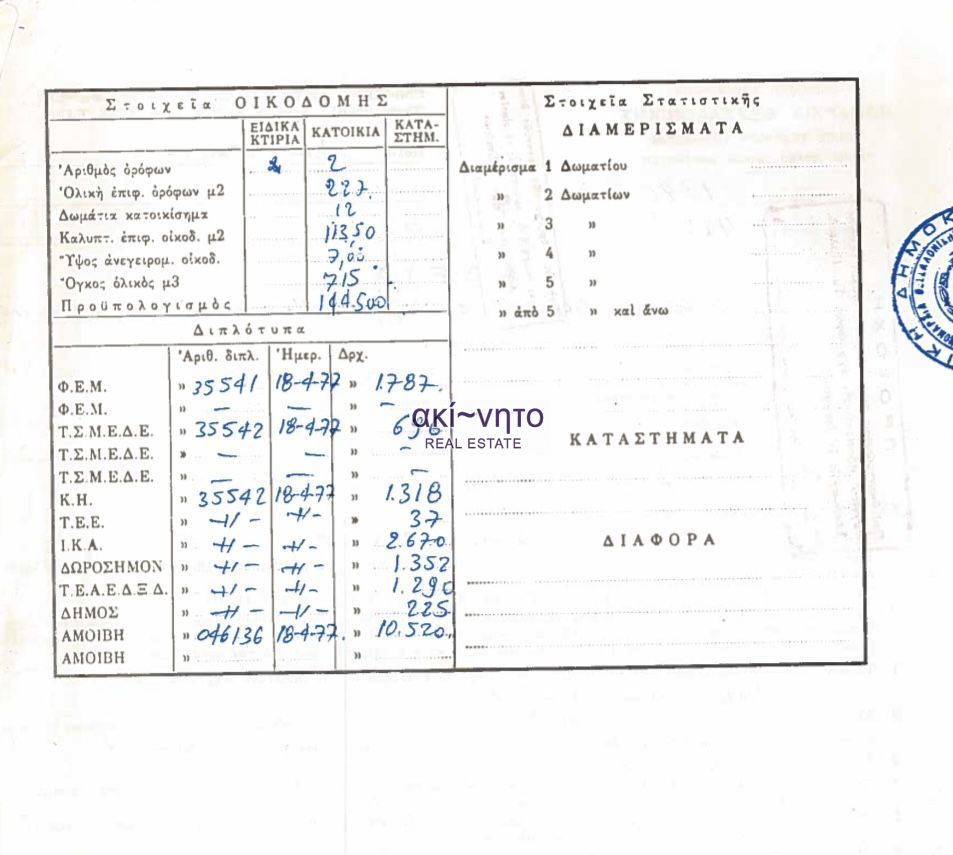 Στοιχεῖα ΟΙΚΟΔΟΜΗΣ
ΕΙΔΙΚΑ ΚΤΙΡΙΑ ΚΑΤΟΙΚΙΑ ΚΑΤΑ-ΣΤΗΜ.
Ἀριθμὸς ὀρόφων 2
Ὁλικὴ ἐπιφ. ὀρόφων μ2 227.
Δωμάτια κατοικίσημα 12
Καλυπτ. ἐπιφ. οἰκοδ. μ2 113,50
Ὕψος ἀνεγειρομ. οἰκοδ. 7,00
Ὄγκος ὁλικὸς μ3 715
Προϋπολογισμὸς 144.500
Διπλότυπα
Ἀριθ. διπλ. Ἡμερ. Δρχ.
Φ.Ε.Μ. » 35541 18-4-77 » 1.787.
Φ.Ε.Μ. » — — » —
Τ.Σ.Μ.Ε.Δ.Ε. » 35542 18-4-77 » 696
Τ.Σ.Μ.Ε.Δ.Ε. » — — » —
Τ.Σ.Μ.Ε.Δ.Ε. » — — » —
Κ.Η. » 35542 18-4-77 » 1.318
Τ.Ε.Ε. » -//- -//- » 37
Ι.Κ.Α. » -//- -//- » 2.670
ΔΩΡΟΣΗΜΟΝ » -//- -//- » 1.352
Τ.Ε.Α.Ε.Δ.Ξ.Δ. » -//- -//- » 1.290
ΔΗΜΟΣ » -//- -//- » 225
ΑΜΟΙΒΗ » 046136 18-4-77. » 10.520
ΑΜΟΙΒΗ » »
Στοιχεῖα Στατιστικῆς
ΔΙΑΜΕΡΙΣΜΑΤΑ
Διαμέρισμα 1 Δωματίου
» 2 Δωματίων
» 3 »
» 4 »
» 5 »
» ἀπὸ 5 » καὶ ἄνω
ΚΑΤΑΣΤΗΜΑΤΑ
ΔΙΑΦΟΡΑ
ακί~νητο
REAL ESTATE